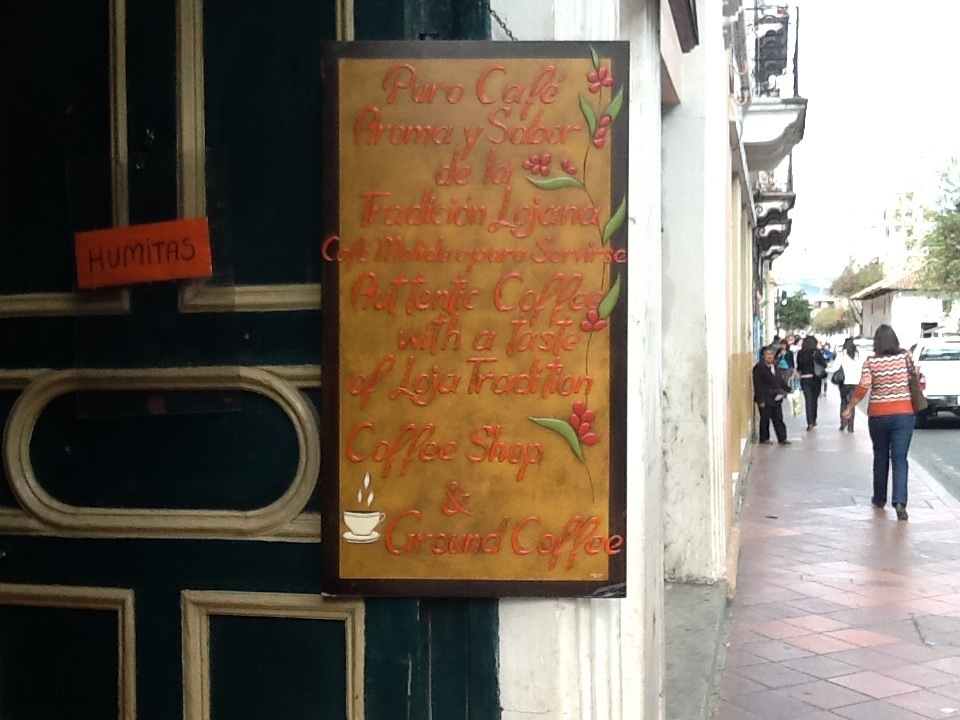 HUMITAS
Puro Café
Aroma y Sabor
de la
Tradición Lojana
Café Molido o para Servirse
Auttentic Coffee
with a taste
of Loja Tradition
Coffee Shop
&
Ground Coffee